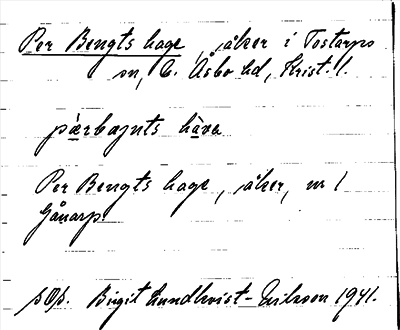 Per Bengts hage, åker i Tostarps
sn, C. Åsbo hd, Krist. l.
pärbaŋnts hàva
Per Bengts hage, åker, nr 1
Gånarp.
Birgit Lundkvist-Nilsson 1941.